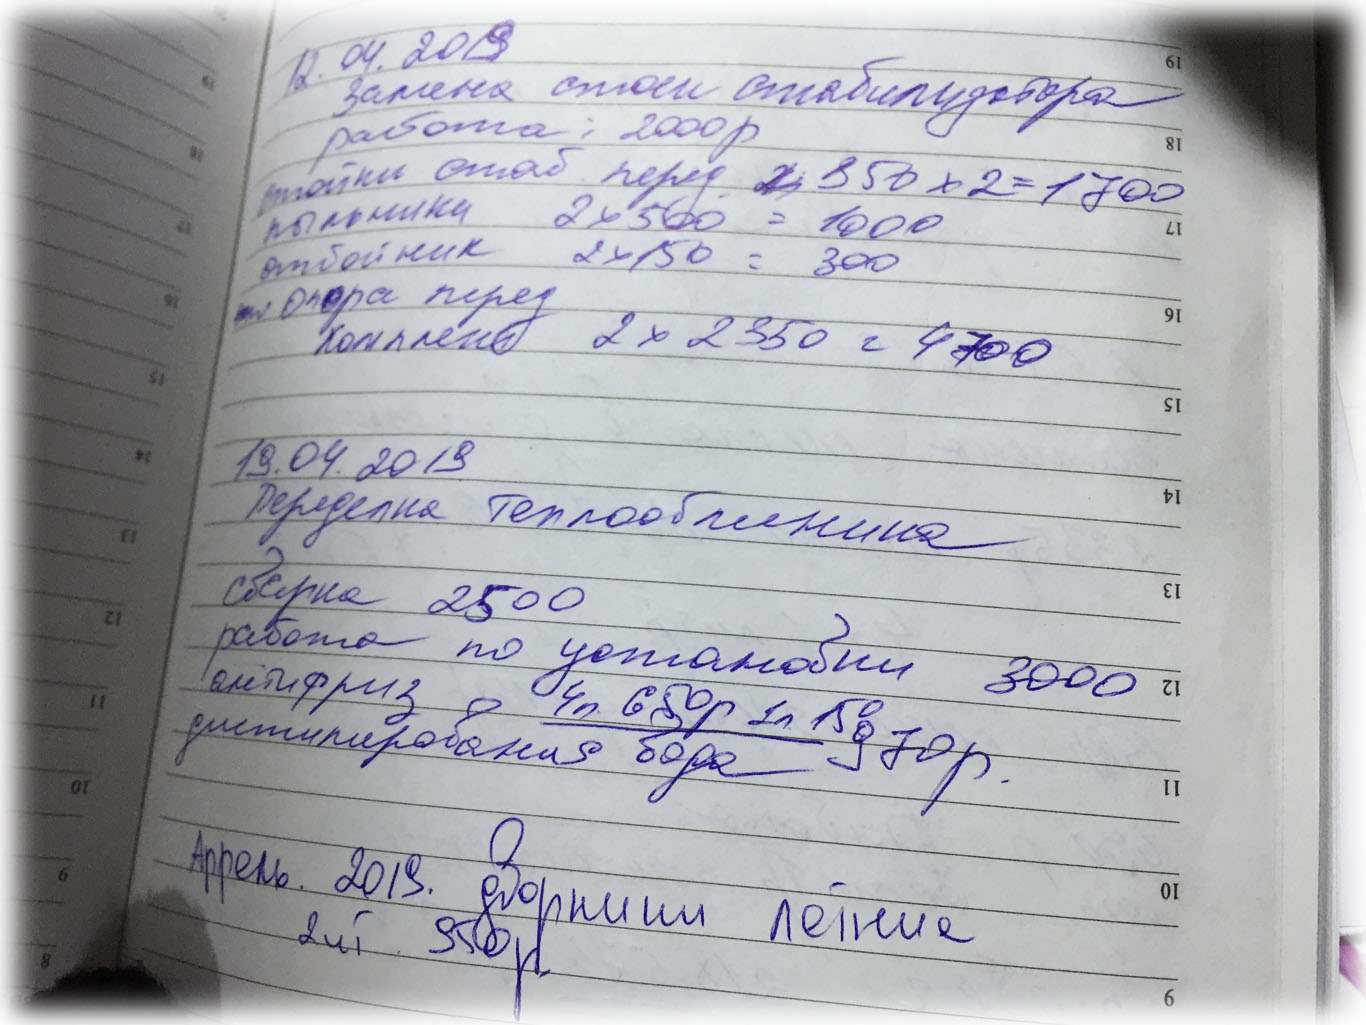 12.04.2019
Замена стоек стабилизатора
работа: 2000р
стойки стаб перед 850 x 2 = 1700
пыльники 2 x 500 = 1000
отбойник 2 x 150 = 300
Опора перед
комплект 2 x 2350 = 4700
19.04.2019
Переделка теплообменника
сварка 2500
работа по установки 3000
антифриз 4л 650р 1л 150
дистилированая вода 970р.
Апрель. 2019. дворники летние
2шт. 950р
19
18
17
16
15
14
13
12
11
10
9
19
18
17
16
15
14
13
12
11
10
9
8